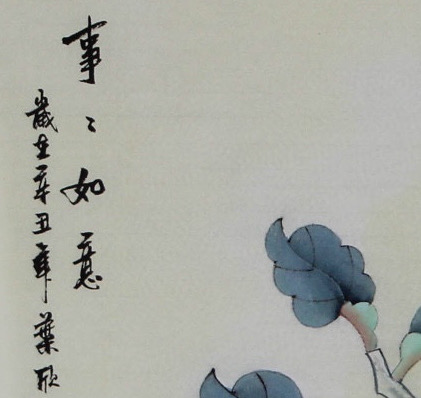 事〻如意
歲在辛丑年葉欣